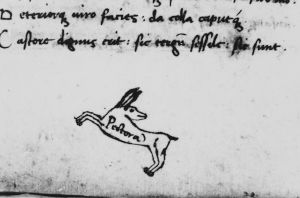 Deterioraq viro facies: da colla caputq
Castore dignus erit: sic tergu sessile: sic sunt
Pectora